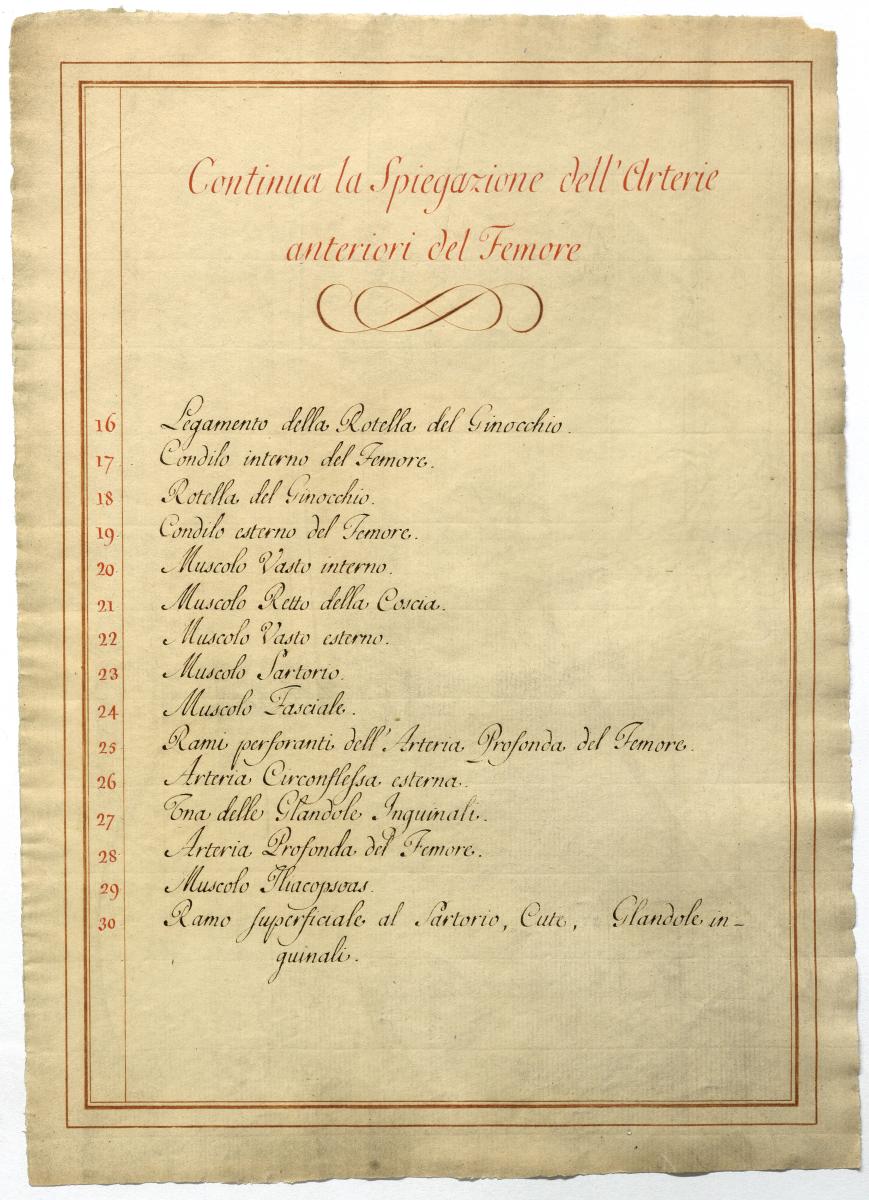 Continua la Spiegazione dell'Arterie
anteriori del Femore
16 Legamento della Rotella del Ginocchio.
17 Condilo interno del Femore.
18 Rotella del Ginocchio.
19 Condilo esterno del Femore.
20 Muscolo Vasto interno.
21 Muscolo Retto della Coscia.
22 Muscolo Vasto esterno.
23 Muscolo Sartorio.
24 Muscolo Fasciale.
25 Rami perforanti dell'Arteria Profonda del Femore.
26 Arteria Circonflessa esterna.
27 Una delle Glandole Inguinali.
28 Arteria Profonda del Femore.
29 Muscolo Iliacopsoas.
30 Ramo superficiale al Sartorio, Cute, Glandole in-
guinali.